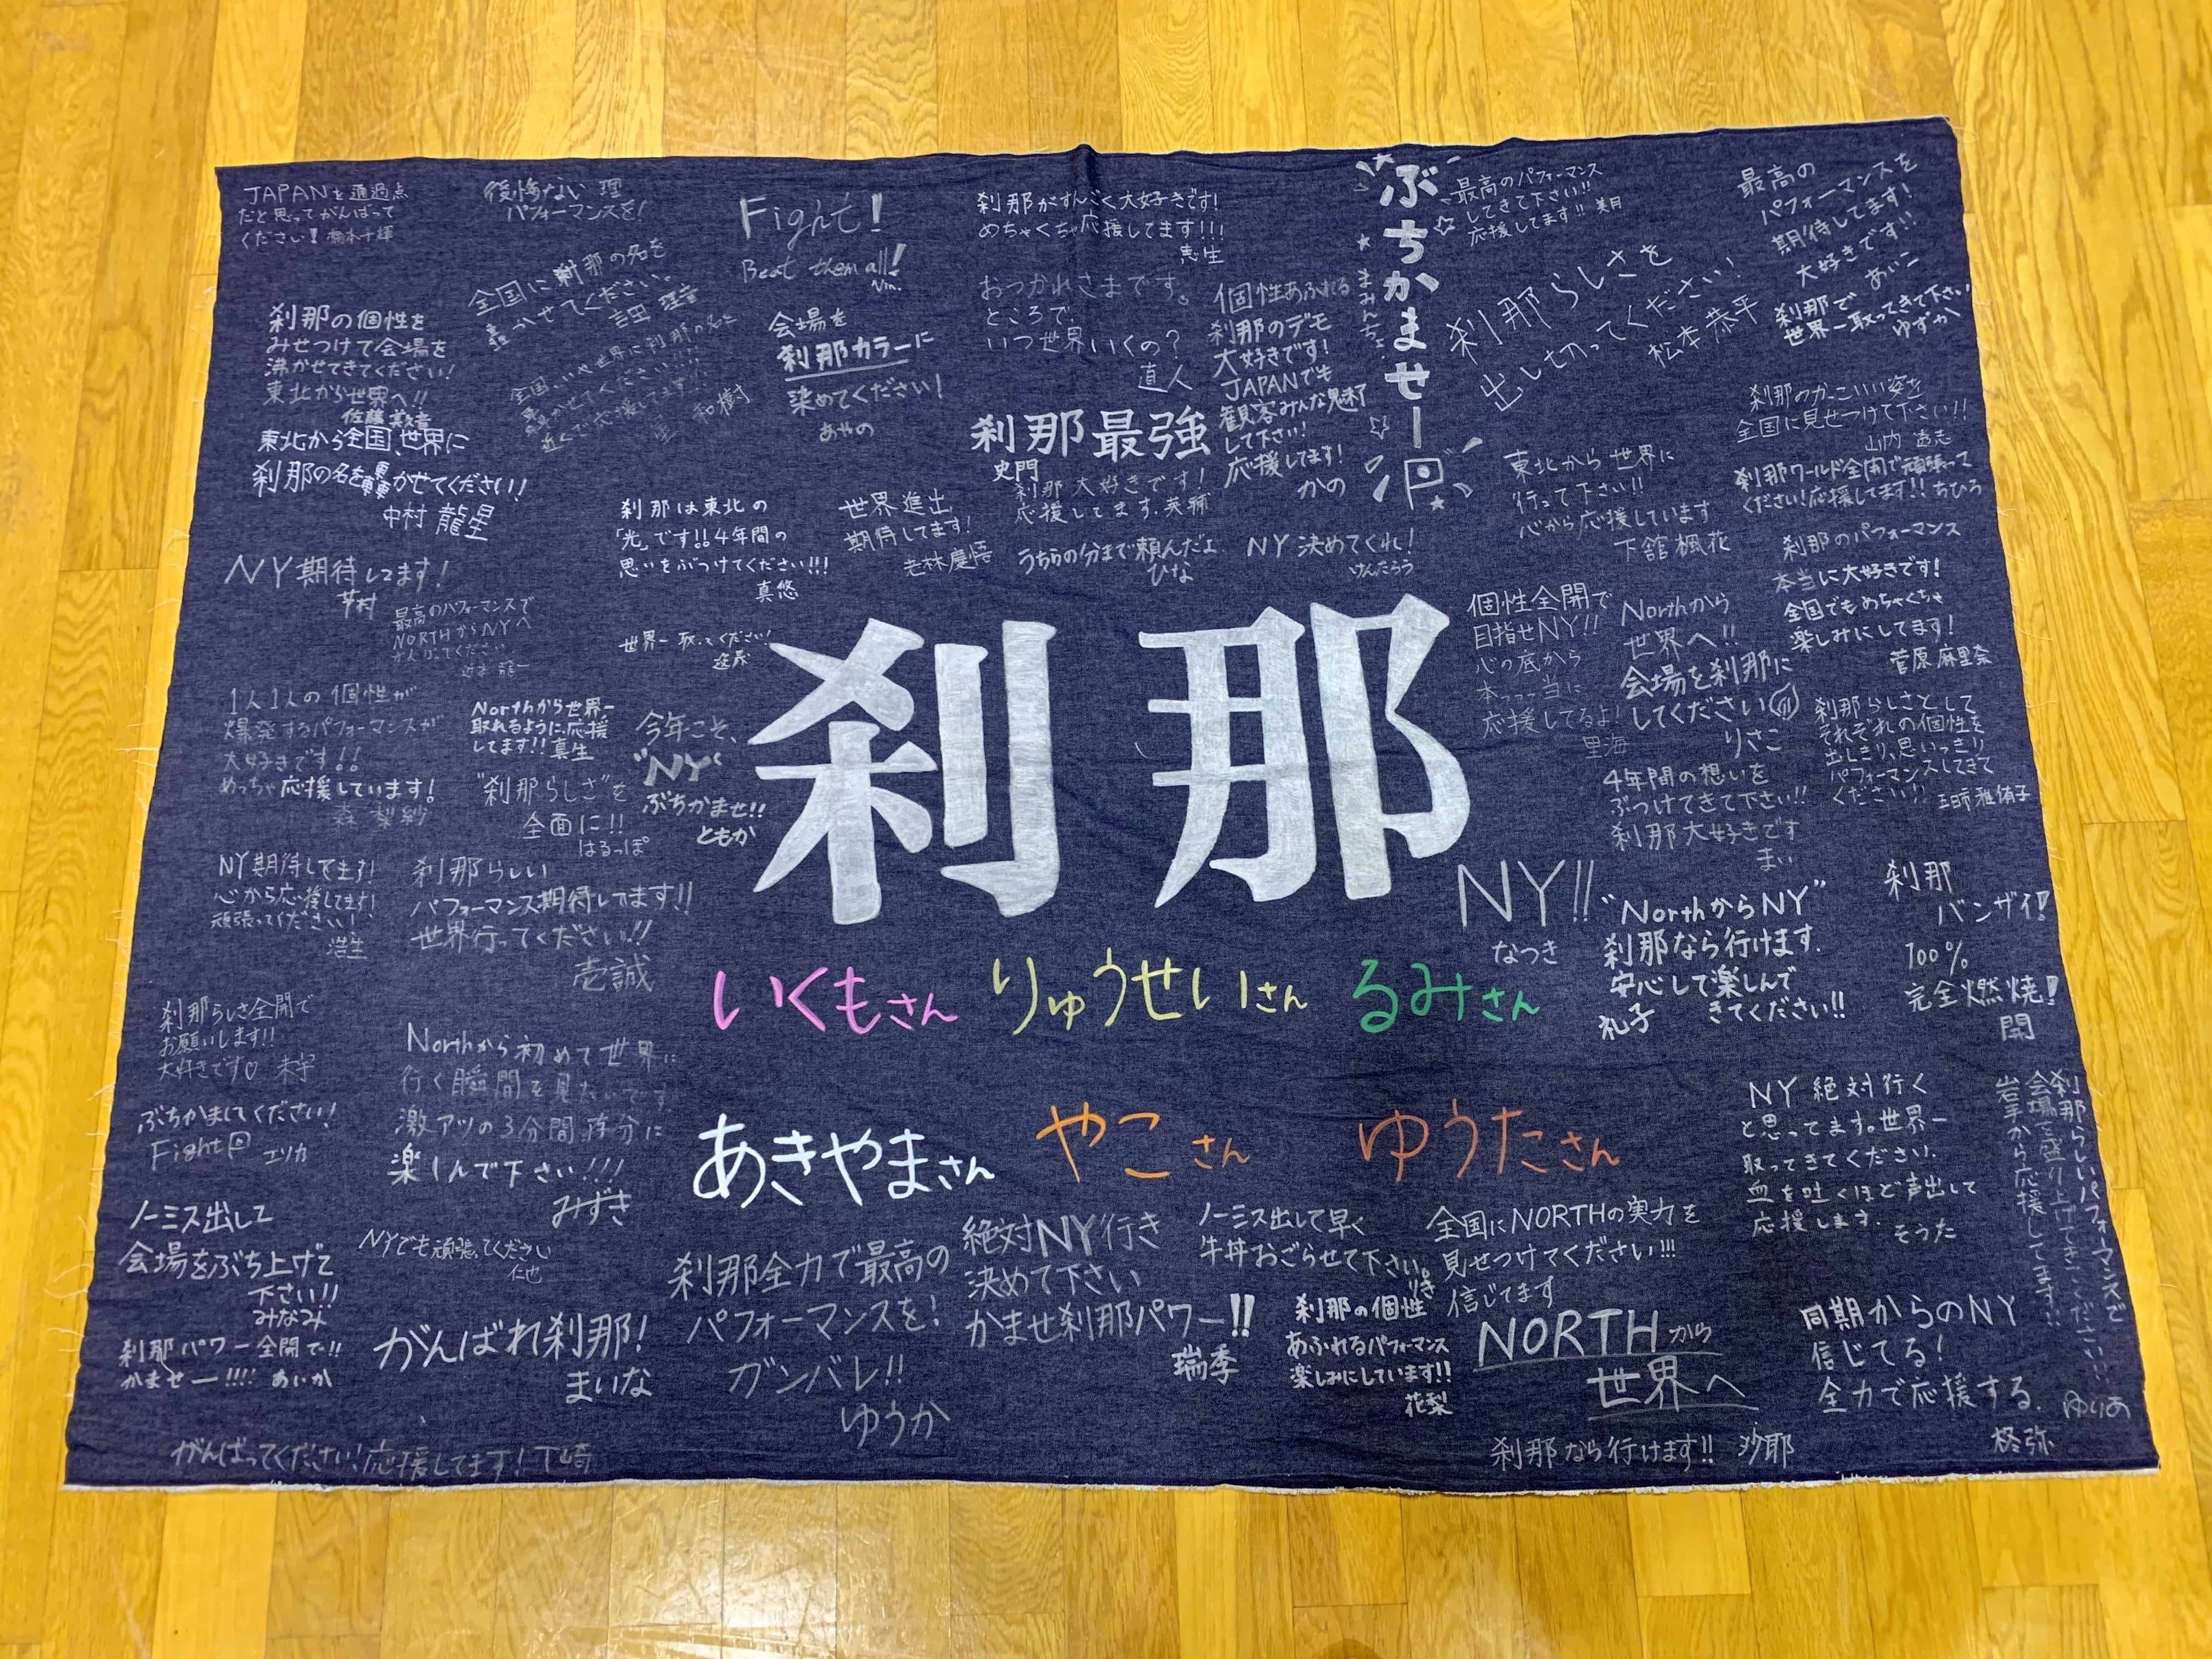 JAPANを通過点
だと思ってがんばって
ください!
後悔ない
パフォーマンスを!
Fight!
Beat them all!
刹那がすんごく大好きです!
めちゃくちゃ応援してます!!!
恵生
ぶちかませー
最高のパフォーマンス
してきて下さい!!
応援してます!! 美月
最高の
パフォーマンスを
期待してます!
大好きです!!
あいこ
刹那で
世界一取ってきて下さい
ゆずか
全国に刹那の名を
轟かせてください。
吉田
刹那の個性を
みせつけて会場を
沸かせてきてください!
東北から世界へ!!
佐藤
東北から全国、世界に
刹那の名を轟かせてください!
中村 龍星
全国、いや世界に刹那の名を
轟かせてください!!!!
近くで応援してます!!
和樹
会場を
刹那カラーに
染めてください!
あやの
おつかれさまです。
ところで、
いつ世界いくの?
直人
個性あふれる
刹那のデモ
大好きです!
JAPANでも
観客みんな魅了
して下さい!
応援してます!
かの
まみんちょ
刹那らしさを
出し切ってください!
松本恭平
刹那のかっこいい姿を
全国に見せつけて下さい!!
山内
刹那最強
史門
刹那大好きです!
応援してます。英輔
東北から世界に
行って下さい!!
心から応援しています
下舘楓花
刹那ワールド全開で頑張って
ください!応援してます!! ちひろ
刹那は東北の
「光」です!!4年間の
思いをぶつけてください!!!
真悠
世界進出
期待してます!
老林慶悟
うちらの分まで頼んだよ
ひな
NY決めてくれ!
けんたろう
NY期待してます!
最高のパフォーマンスで
NORTHからNYへ
世界一取ってください!
刹那のパフォーマンス
本当に大好きです!
全国でもめちゃくちゃ
楽しみにしてます!
菅原麻里奈
個性全開で
目指せNY!!
心の底から
本っっっ当に
応援してるよ!
里海
Northから
世界へ!!
会場を刹那に
してください
りさこ
刹那
1人1人の個性が
爆発するパフォーマンスが
大好きです!!
めっちゃ応援しています!
森 梨紗
Northから世界一
取れるように、応援
してます!! 真生
今年こそ、
"NY"
ぶちかませ!!
ともか
"刹那らしさ"を
全面に!!
はるっぽ
4年間の想いを
ぶつけてきて下さい!!
刹那大好きです
まい
刹那らしさとして
それぞれの個性を
出しきり、思いっきり
パフォーマンスしてきて
ください!!
NY期待してます!
心から応援してます!
頑張ってください!
浩生
刹那らしい
パフォーマンス期待してます!!
世界行ってください!!
壱誠
NY!!
なつき
"NorthからNY"
刹那なら行けます.
安心して楽しんで
きてください!!
礼子
刹那
バンザイ!
100%
完全燃焼!
開
いくもさん りゅうせいさん るみさん
あきやまさん やこさん ゆうたさん
刹那らしさ全開で
お願いします!!
大好きです♡ 未宇
Northから初めて世界に
行く瞬間を見たいです。
激アツの3分間存分に
楽しんで下さい!!!
みずき
ぶちかましてください!
Fight エリカ
NY絶対行く
と思ってます。世界一
取ってきてください.
血を吐くほど声出して
応援します.
そうた
刹那らしいパフォーマンスで
会場を盛り上げてきてください!!
岩手から応援してます!!
ゆりあ
ノーミス出して
会場をぶち上げて
下さい!!
みなみ
NYでも頑張ってください
仁也
刹那全力で最高の
パフォーマンスを!
ガンバレ!!
ゆうか
絶対NY行き
決めて下さい
かませ刹那パワー!!
瑞季
ノーミス出して早く
牛丼おごらせて下さい。
りき
全国にNORTHの実力を
見せつけてください!!!
信じてます
刹那の個性
あふれるパフォーマンス
楽しみにしています!!
花梨
NORTHから
世界へ
刹那なら行けます!! 沙耶
同期からのNY
信じてる!
全力で応援する.
柊弥
刹那パワー全開で!!
かませー!!!! あいか
がんばれ刹那!
まいな
がんばってください!応援してます!